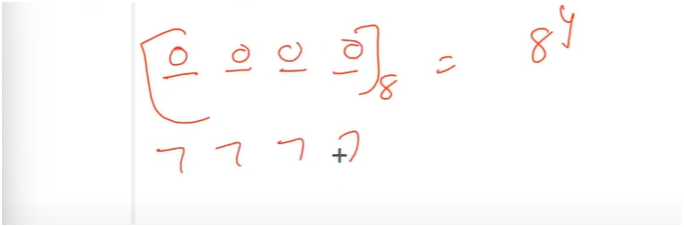 [0 0 0 0]8 = 8^4
7 7 7 7